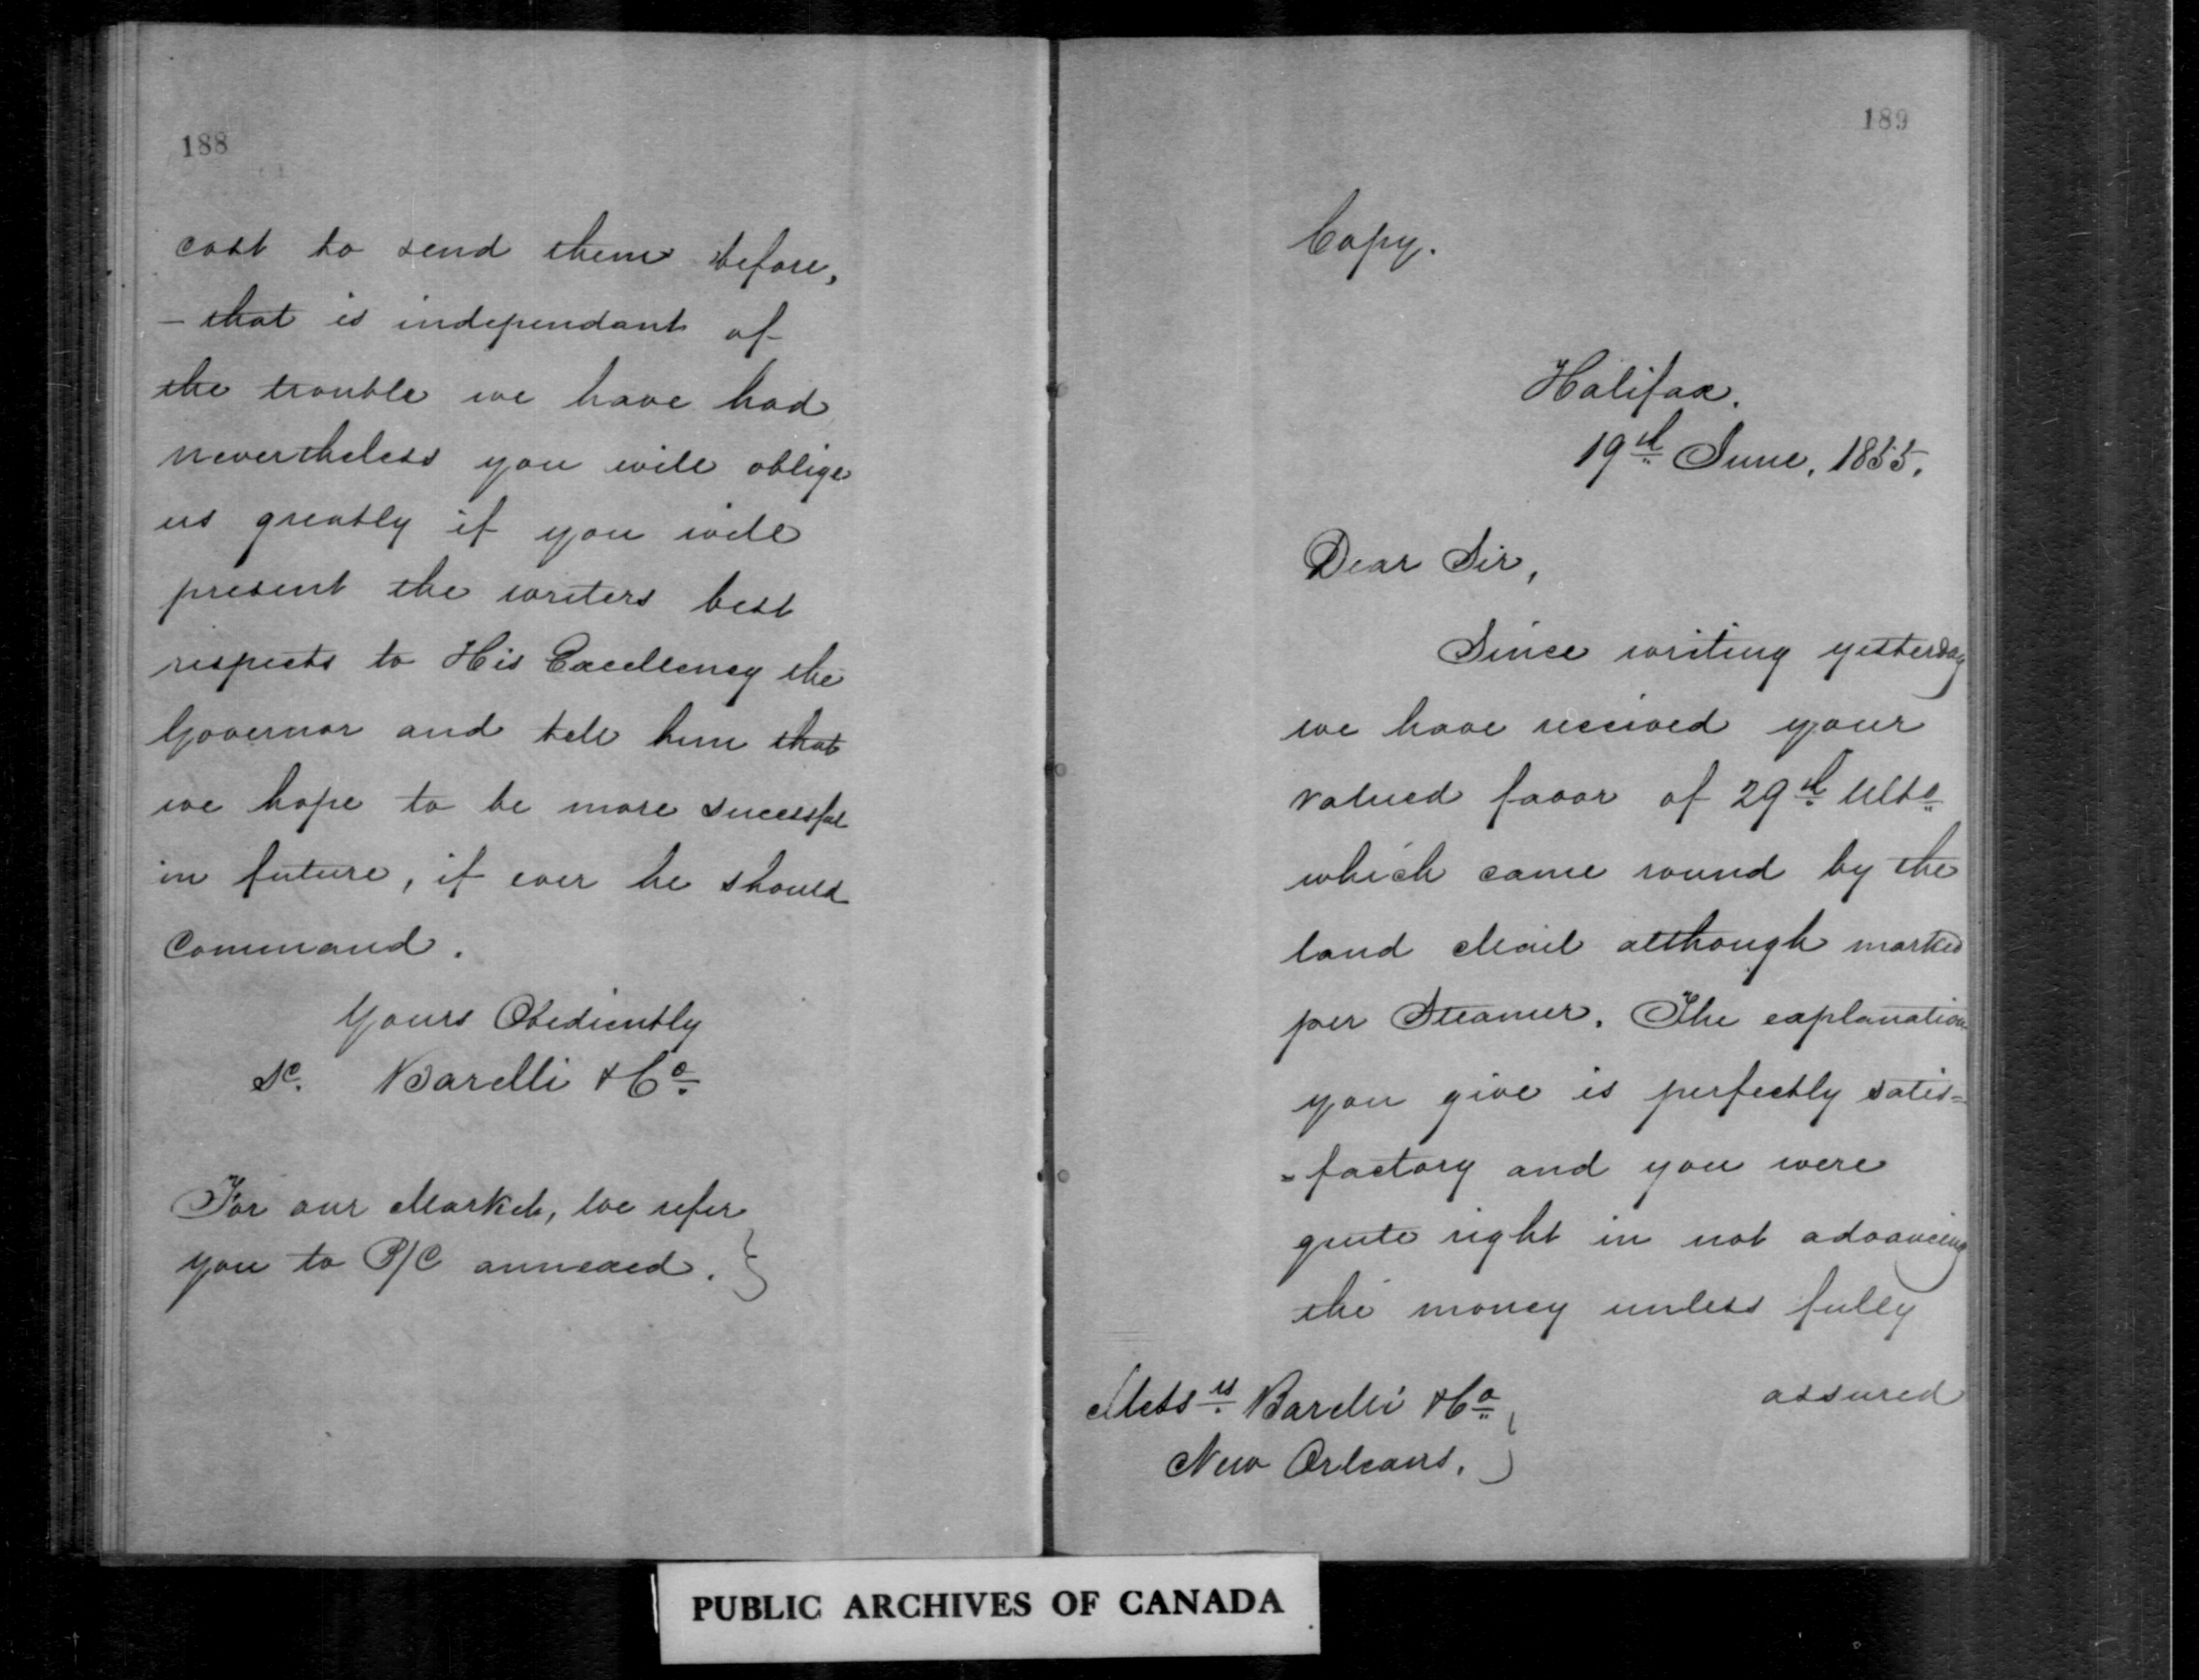 188
cost to send them before,
— that is independant of
the trouble we have had
nevertheless you will oblige
us greatly if you will
present the writers best
respects to His Excellency the
Governor and tell him that
we hope to be more sucessful
in future, if ever he should
Command.
Yours Obediently
Barelli & Co.
For our Market, we refer
you to P/C annexed.
189
Copy.
Halifax.
19th June, 1855.
Dear Sir,
Since writing yesterday
we have received your
valued favor of 29th Ulto
which came round by the
land Mail although marked
per Steamer. The explanation
you give is perfectly satis=
=factory and you were
quite right in not advancing
the money unless fully
assured
Messrs Barelli & Co
New Orleans.
PUBLIC ARCHIVES OF CANADA